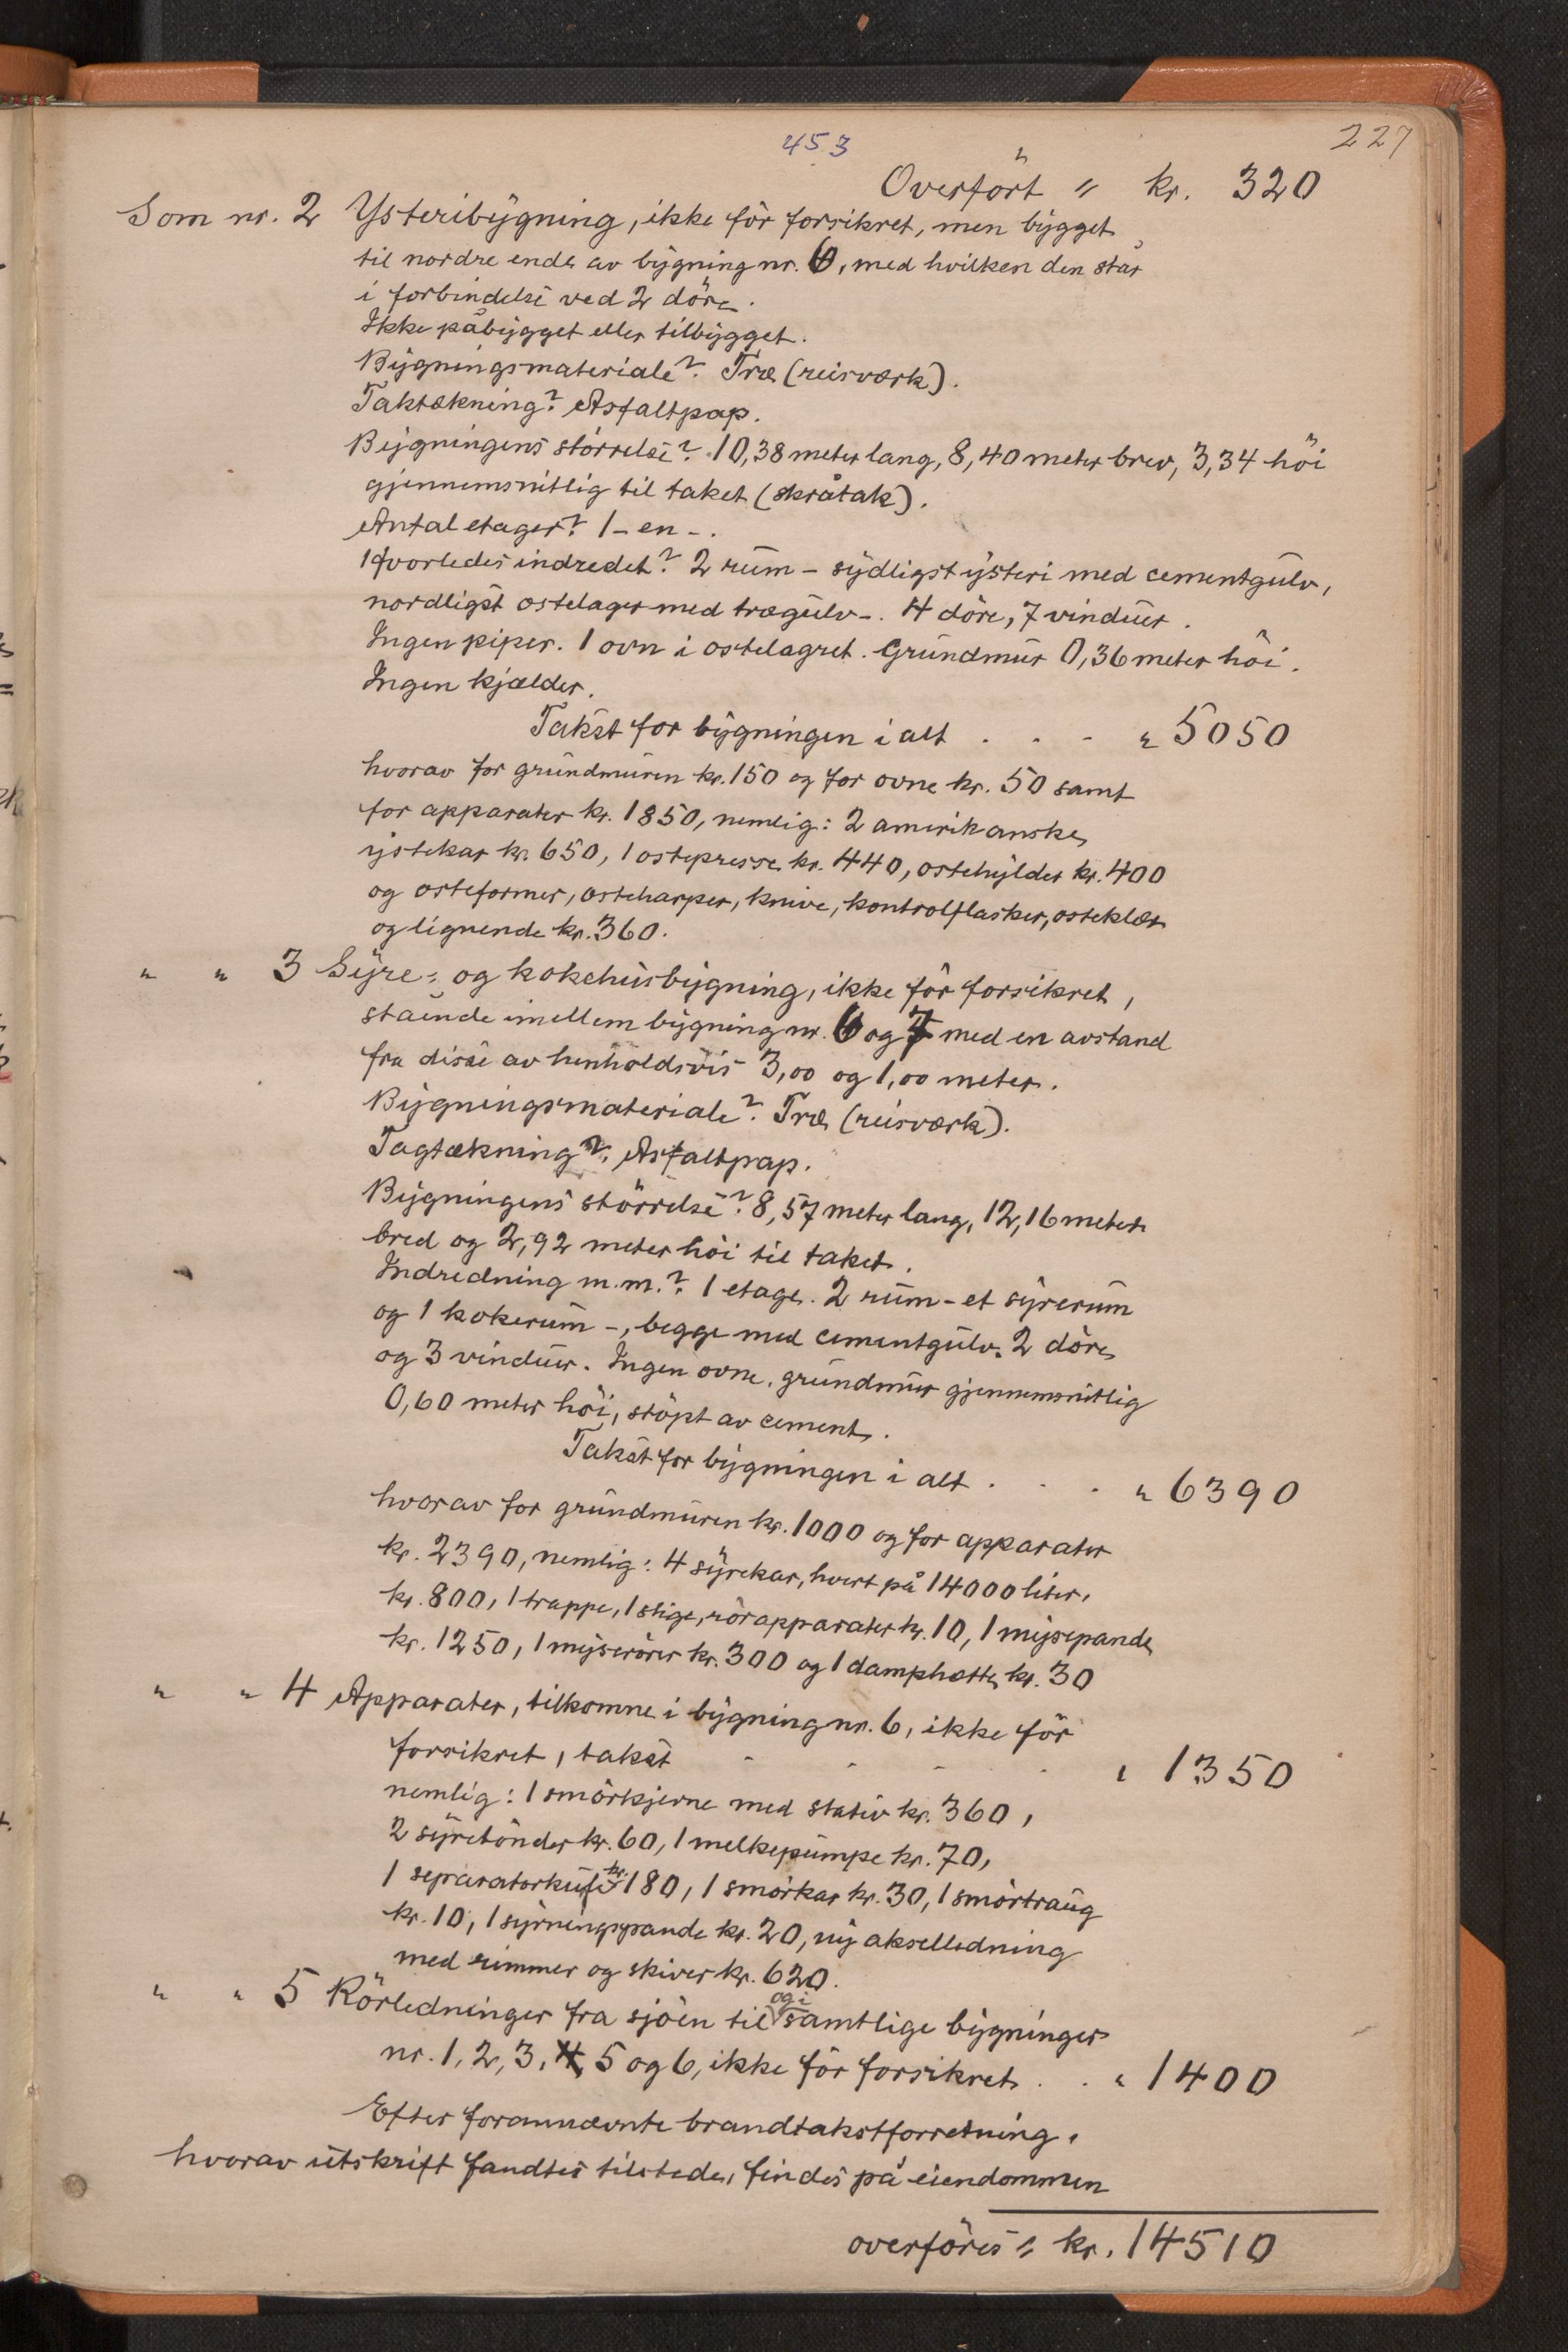 453
227
Overfört " kr. 320
Som nr. 2 Ysteribygning, ikke för forsikret, men bygget
til nordre ende av bygning nr. 6, med hvilken den står
i forbindelse ved 2 döre.
Ikke påbygget eller tilbygget.
Bygningsmateriale? Træ (reisværk).
Taktækning? Asfaltpap.
Bygningens störrelse? 10,38 meter lang, 8,40 meter brev, 3,34 höi
gjennemsnitlig til taket (skråtak).
Antal etager? 1 - en -.
Hvorledes indredet? 2 rum - sydligst ysteri med cementgulv,
nordligst ostelager med trægulv -. 4 döre, 7 vinduer.
Ingen piper. 1 ovn i ostelagret. Grundmur 0,36 meter höi.
Ingen kjælder.
Takst for bygningen i alt . . . " 5050
hvorav for grundmuren kr. 150 og for ovne kr. 50 samt
for apparater kr. 1850, nemlig: 2 amerikanske
ystekar kr. 650, 1 ostepresse kr. 440, ostehylder kr. 400
og osteformer, osteharper, knive, kontrolflasker, osteklær
og lignende kr. 360.
" " 3 Syre- og kokehusbygning, ikke för forsikret,
stående imellem bygning nr. 6 og 7 med en avstand
fra disse av henholdsvis 3,00 og 1,00 meter.
Bygningsmateriale? Træ (reisværk).
Tagtækning? Asfaltpap.
Bygningens störrelse? 8,57 meter lang, 12,16 meter
bred og 2,92 meter höi til taket.
Indredning m.m.? 1 etage. 2 rum - et syrerum
og 1 kokerum -, begge med cementgulv. 2 döre
og 3 vinduer. Ingen ovne, grundmur gjennemsnitlig
0,60 meter höi, stöpt av cement.
Takst for bygningen i alt . . . " 6390
hvorav for grundmuren kr. 1000 og for apparater
kr. 2390, nemlig: 4 syrekar, hvert på 14000 liter,
kr. 800, 1 trappe, 1 stige, rörapparater kr. 10, 1 mysepande
kr. 1250, 1 myserörer kr. 300 og 1 damphætte kr. 30
" " 4 Apparater, tilkomne i bygning nr. 6, ikke för
forsikret, takst - - - . " 1350
nemlig: 1 smörkjerne med stativ kr. 360,
2 syretönder kr. 60, 1 melkepumpe kr. 70,
1 separatorkule kr. 180, 1 smörkar kr. 30, 1 smörtraug
kr. 10, 1 syrningspande kr. 20, ny akselledning
med rimmer og skiver kr. 620.
" " 5 Rörledninger fra sjöen til og i samtlige bygninger
nr. 1, 2, 3, 4, 5 og 6, ikke för forsikret . . " 1400
Efter forannævnte brandtakstforretning,
hvorav utskrift fandtes tilstede, findes på eiendommen
overföres " kr. 14510